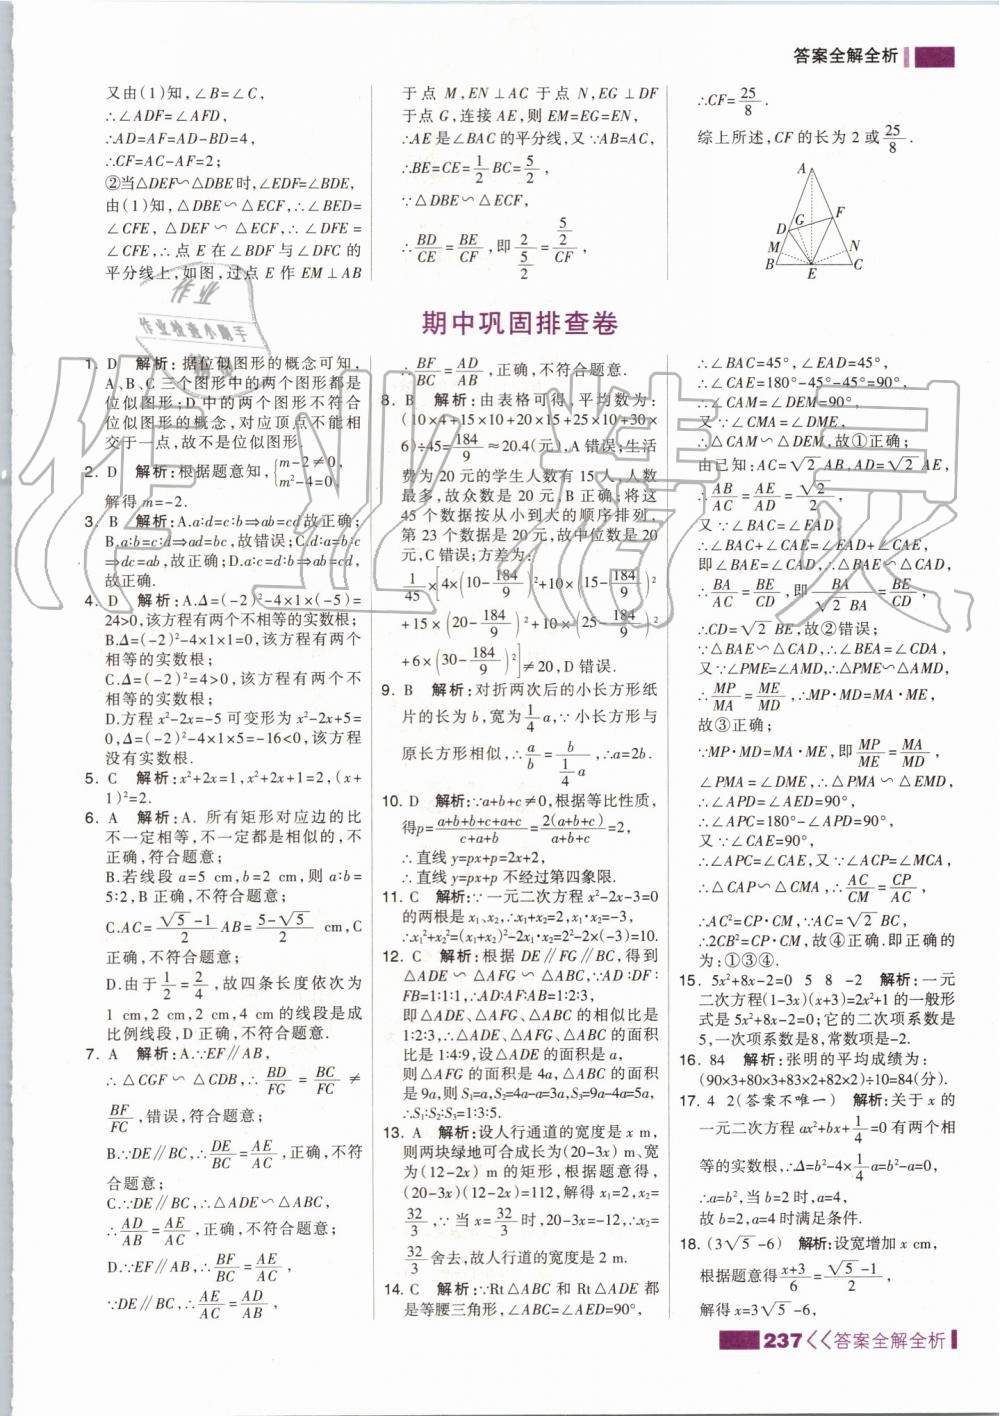 答案全解全析
又由(1)知,∠B=∠C,
∴∠ADF=∠AFD,
∴AD=AF=AD-BD=4,
∴CF=AC-AF=2;
②当△DEF∽△DBE时,∠EDF=∠BDE,
由(1)知,△DBE∽△ECF,∴∠BED=
∠CFE,△DEF∽△ECF,∴∠DFE=
∠CFE,∴点E在∠BDF与∠DFC的
平分线上,如图,过点E作EM⊥AB
于点M,EN⊥AC于点N,EG⊥DF
于点G,连接AE,则EM=EG=EN,
∴AE是∠BAC的平分线,又∵AB=AC,
∴BE=CE=1/2 BC=5/2,
∵△DBE∽△ECF,
∴BD/CE=BE/CF,即2/(5/2)=(5/2)/CF,
∴CF=25/8.
综上所述,CF的长为2或25/8.
A
D G F
M N
B E C
期中巩固排查卷
1. D 解析:据位似图形的概念可知,
A、B、C三个图形中的两个图形都是
位似图形;D中的两个图形不符合
位似图形的概念,对应顶点不能相
交于一点,故不是位似图形.
2. D 解析:根据题意知,{m-2≠0, m²-4=0,
解得m=-2.
3. B 解析:A.a:d=c:b⇒ab=cd故正确;
B.a:b=c:d⇒ad=bc,故错误;C.d:a=b:c
⇒dc=ab,故正确;D.a:c=d:b⇒ab=cd,
故正确.
4. D 解析:A.Δ=(-2)²-4×1×(-5)=
24>0,该方程有两个不相等的实数根;
B.Δ=(-2)²-4×1×1=0,该方程有两个
相等的实数根;
C.Δ=(-2)²=4>0,该方程有两个不
相等的实数根;
D.方程x²-2x=-5可变形为x²-2x+5=
0,Δ=(-2)²-4×1×5=-16<0,该方程
没有实数根.
5. C 解析:x²+2x=1,x²+2x+1=2,(x+
1)²=2.
6. A 解析:A.所有矩形对应边的比
不一定相等,不一定都是相似的,不
正确,符合题意;
B.若线段a=5 cm,b=2 cm,则a:b=
5:2,B正确,不符合题意;
C.AC=(√5-1)/2 AB=(5-√5)/2 cm,C
正确,不符合题意;
D.由于1/2=2/4,故四条长度依次为
1 cm,2 cm,2 cm,4 cm的线段是成
比例线段,D正确,不符合题意.
7. A 解析:A.∵EF∥AB,
∴△CGF∽△CDB,∴BD/FG=BC/FC≠
BF/FC,错误,符合题意;
B.∵DE∥BC,∴DE/BC=AE/AC,正确,不符
合题意;
C.∵DE∥BC,∴△ADE∽△ABC,
∴AD/AB=AE/AC,正确,不符合题意;
D.∵EF∥AB,∴BF/BC=AE/AC,
∵DE∥BC,∴AE/AC=AD/AB,
∴BF/BC=AD/AB,正确,不符合题意.
8. B 解析:由表格可得,平均数为:
(10×4+15×10+20×15+25×10+30×
6)÷45=184/9≈20.4(元),A错误;生活
费为20元的学生人数有15人,人数
最多,故众数是20元,B正确;将这
45个数据按从小到大的顺序排列,
第23个数据是20元,故中位数是20
元,C错误;方差为:
1/45×[4×(10-184/9)²+10×(15-184/9)²
+15×(20-184/9)²+10×(25-184/9)²
+6×(30-184/9)²]≠20,D错误.
9. B 解析:对折两次后的小长方形纸
片的长为b,宽为1/4 a,∵小长方形与
原长方形相似,∴a/b=b/(1/4 a),∴a=2b.
10. D 解析:∵a+b+c≠0,根据等比性质,
得p=(a+b+b+c+a+c)/(c+a+b)=2(a+b+c)/(a+b+c)=2,
∴直线y=px+p=2x+2,
∴直线y=px+p不经过第四象限.
11. C 解析:∵一元二次方程x²-2x-3=0
的两根是x₁、x₂,∴x₁+x₂=2,x₁·x₂=-3,
∴x₁²+x₂²=(x₁+x₂)²-2x₁·x₂=2²-2×(-3)=10.
12. C 解析:根据DE∥FG∥BC,得到
△ADE∽△AFG∽△ABC,∵AD:DF:
FB=1:1:1,∴AD:AF:AB=1:2:3,
即△ADE、△AFG、△ABC的相似比是
1:2:3,∴△ADE、△AFG、△ABC的面积
比是1:4:9,设△ADE的面积是a,
则△AFG的面积是4a,△ABC的面积
是9a,则S₁=a,S₂=4a-a=3a,S₃=9a-4a=5a,
∴S₁:S₂:S₃=1:3:5.
13. A 解析:设人行通道的宽度是x m,
则两块绿地可合成长为(20-3x) m、宽
为(12-2x) m的矩形,根据题意得,
(20-3x)(12-2x)=112,解得x₁=2,x₂=
32/3,∵当x=32/3时,20-3x=-12,∴x₂=
32/3舍去,故人行道的宽度是2 m.
14. C 解析:∵Rt△ABC和Rt△ADE都
是等腰三角形,∠ABC=∠AED=90°,
∴∠BAC=45°,∠EAD=45°,
∴∠CAE=180°-45°-45°=90°,
∴∠CAM=∠DEM=90°,
又∵∠CMA=∠DME,
∴△CAM∽△DEM,故①正确;
由已知:AC=√2AB,AD=√2AE,
∴AB/AC=AE/AD=√2/2,
又∵∠BAC=∠EAD
∴∠BAC+∠CAE=∠EAD+∠CAE,
即∠BAE=∠CAD,∴△BAE∽△CAD,
∴BA/AC=BE/CD,即BA/(√2BA)=BE/CD,
∴CD=√2BE,故②错误;
∵△BAE∽△CAD,∴∠BEA=∠CDA,
又∵∠PME=∠AMD,∴△PME∽△AMD,
∴MP/MA=ME/MD,∴MP·MD=MA·ME,
故③正确;
∵MP·MD=MA·ME,即MP/ME=MA/MD,
∠PMA=∠DME,∴△PMA∽△EMD,
∴∠APD=∠AED=90°,
∴∠APC=180°-∠APD=90°,
又∵∠CAE=90°,
∴∠APC=∠CAE,又∵∠ACP=∠MCA,
∴△CAP∽△CMA,∴AC/CM=CP/AC,
∴AC²=CP·CM,∵AC=√2BC,
∴2CB²=CP·CM,故④正确.即正确的
为:①③④.
15. 5x²+8x-2=0 5 8 -2 解析:一元
二次方程(1-3x)(x+3)=2x²+1的一般形
式是5x²+8x-2=0;它的二次项系数是
5,一次项系数是8,常数项是-2.
16. 84 解析:张明的平均成绩为:
(90×3+80×3+83×2+82×2)÷10=84(分).
17. 4 2(答案不唯一) 解析:关于x的
一元二次方程ax²+bx+1/4=0有两个相
等的实数根,∴Δ=b²-4×1/4a=b²-a=0,
∴a=b²,当b=2时,a=4,
故b=2,a=4时满足条件.
18. (3√5-6) 解析:设宽增加x cm,
根据题意得(x+3)/6=(√5-1)/2,
解得x=3√5-6,
237<<答案全解全析
作业检查小助手
作业精灵